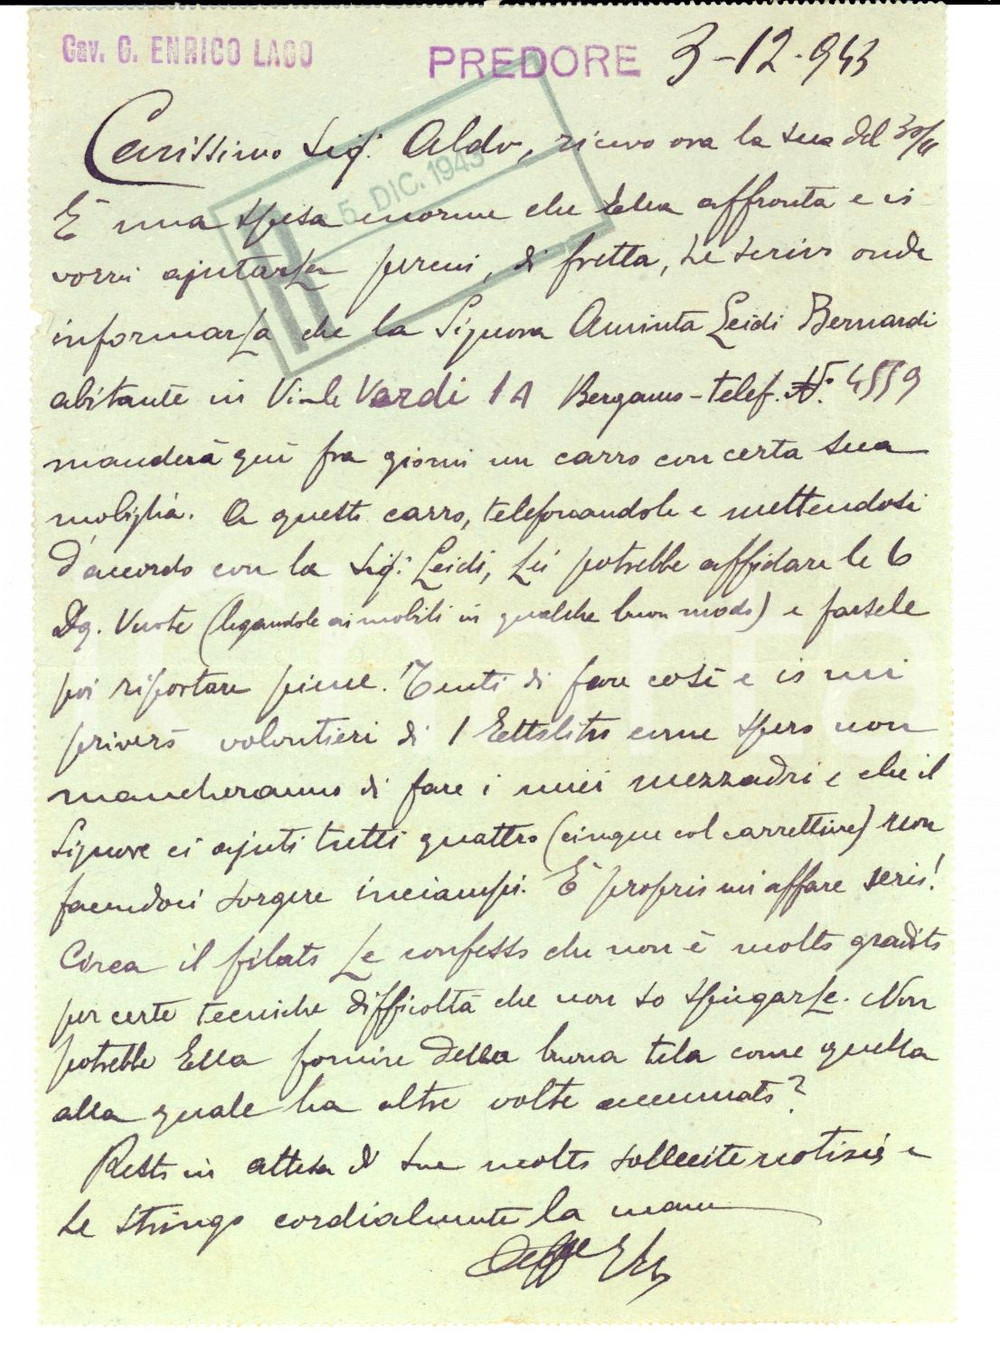 Cav. G. ENRICO LAGO PREDORE 3-12-943
Carissimo Sig. Aldo, ricevo ora la sua del 30/11
5 DIC. 1943
È una spesa enorme che Ella affronta e io
vorrei ajutarLa percui, di fretta, Le scrivo onde
informarLa che la Signora Aminta Leidi Bernardi
abitante in Viale Verdi 1A Bergamo - telef. N. 4559
manderà quì fra giorni un carro con certa sua
mobiglia. A questo carro, telefonandole e mettendosi
d'accordo con la Sig. Leidi, Lei potrebbe affidare le 6
Dg. Vuote (legandole ai mobili in qualche buon modo) e farsele
poi riportare piene. Tenti di fare così e io mi
priverò volontieri di 1 Ettolitro come spero non
mancheranno di fare i miei mezzadri e che il
Signore ci ajuti tutti quattro (cinque col carrettiere) non
facendoci sorgere inciampi. È proprio un affare serio!
Circa il filato Le confesso che non è molto gradito
per certe tecniche difficoltà che non so spiegarLe. Non
potrebbe Ella fornire della buona tela come quella
alla quale ha altre volte accennato?
Resto in attesa di sue molto sollecite notizie e
Le stringo cordialmente la mano